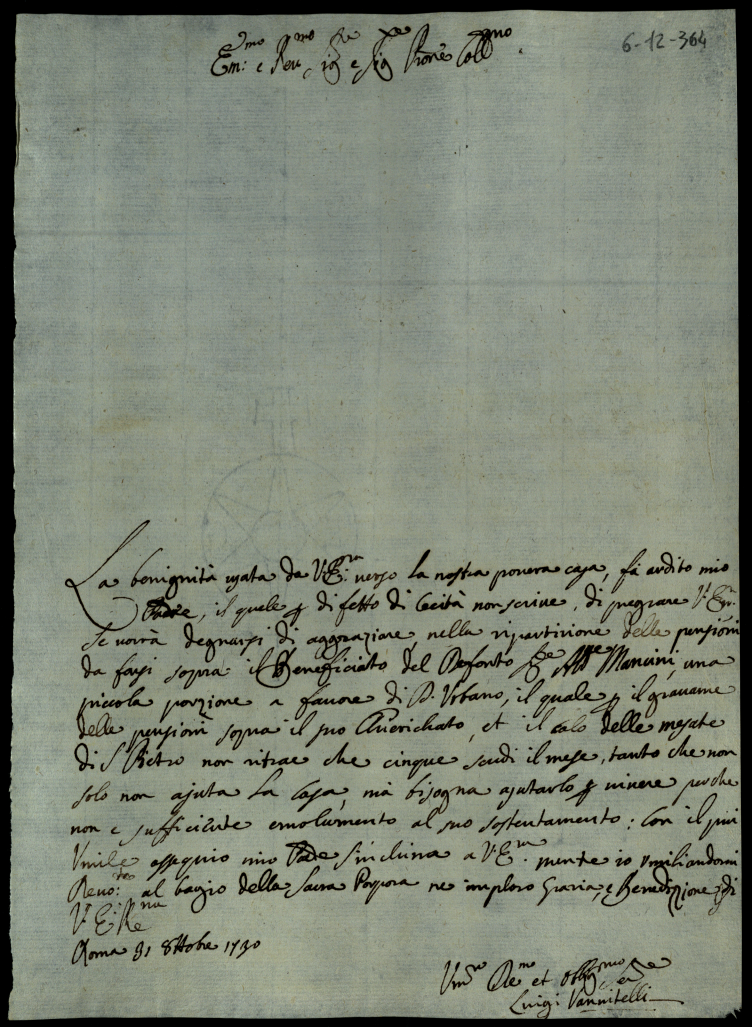 6-12-364
Em:mo e Rev:mo Sig:re e Sig:re Prone Coll:mo
La benignità usata da V:Em:ra verso la nostra povera casa, fà ardito mio
Padre, il quale p difetto di Cecità non scrive, di pregare V:Em:
se vorrà degnarsi di aggraziare nella ripartizione delle pensioni
da farsi sopra il Beneficiato del Defonto Mancini, una
piccola porzione a favore di D. Urbano, il quale p il gravame
delle pensioni sopra il suo Chierichato, et il calo delle mesate
di S Pietro non ritrae che cinque scudi il mese, tanto che non
solo non ajuta la Casa, mà bisogna ajutarlo p vivere perche
non e sufficiente emolumento al suo sostentamento: Con il più
Umile ossequio mio Pade s'inclina a V:E:za mentre io umiliandomi
al bagio della Sacra Porpora ne imploro Grazia, e Benedizione, di
V: E: Rma
Roma 31 8ttobre 1730
Um:mo De:mo et Obblig:mo Ser:re
Luigi Vannitelli